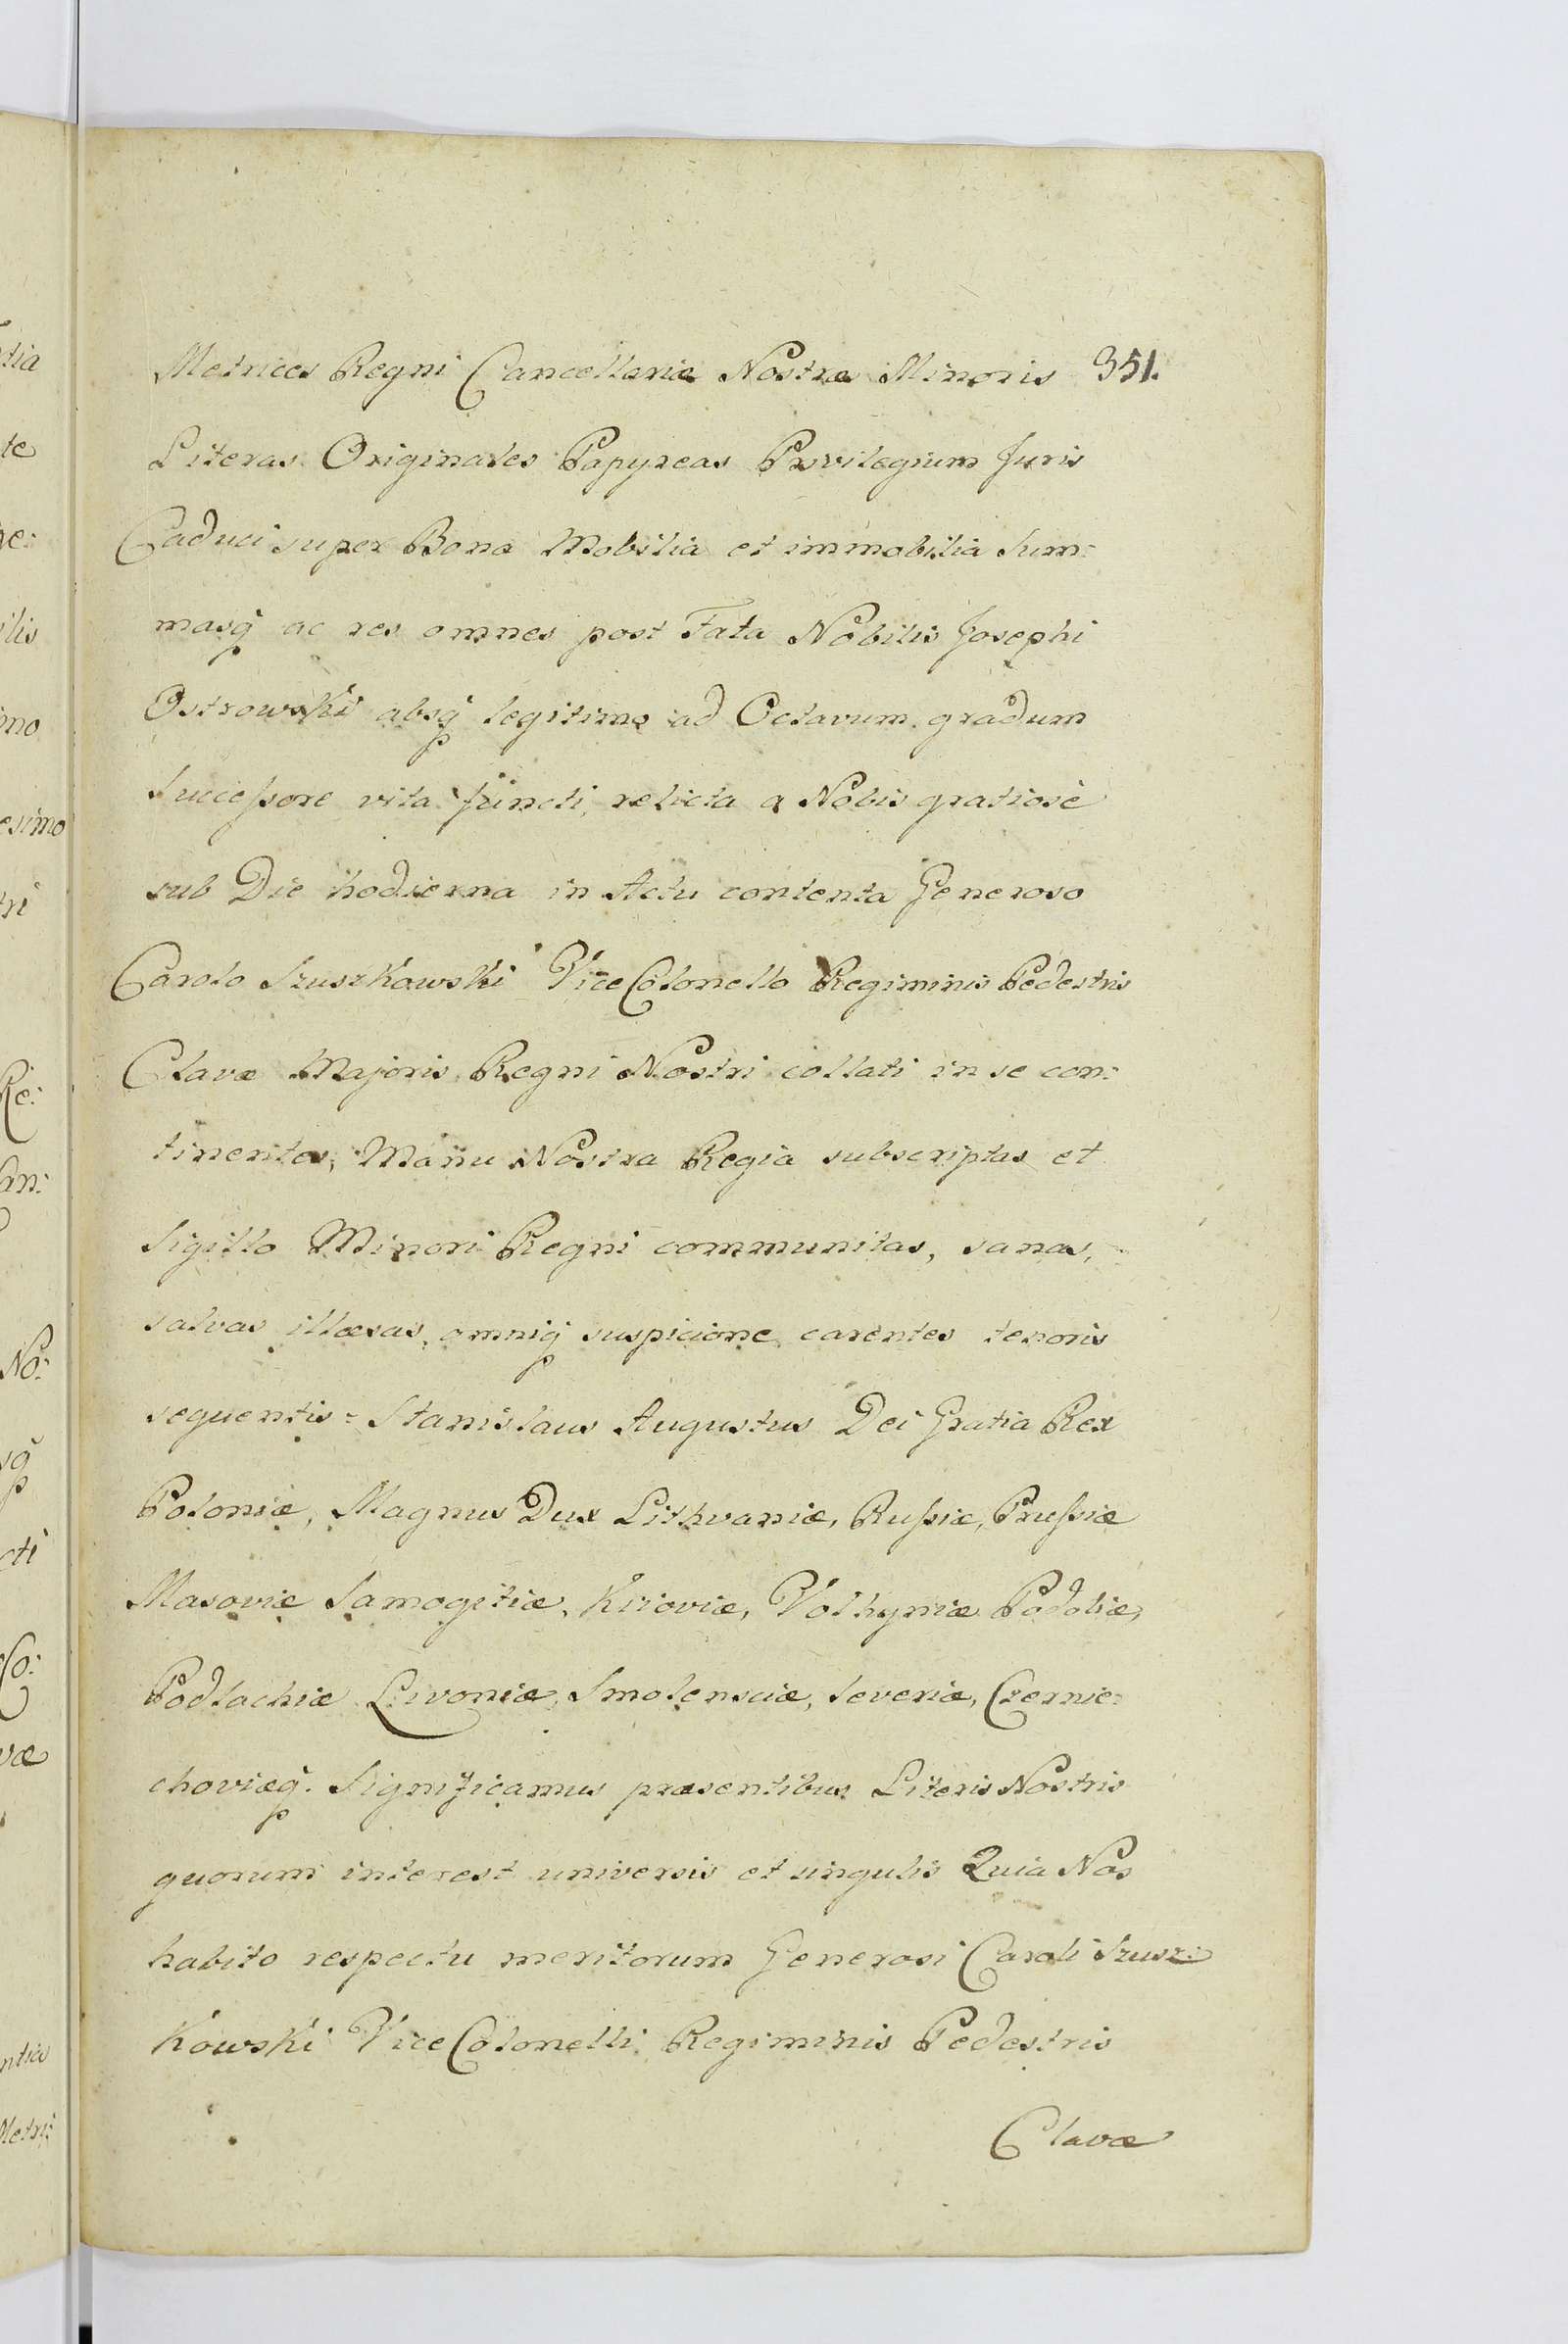 Metrices Regni Cancellariæ Nostræ Minoris 351.
Literas Originales Papyreas Privilegium Juris
Caduci super Bona Mobilia et immobilia Sum:
masq̃ ac res omnes post Fata Nobilis Josephi
Ostrowski absq̃ legitimo ad Octavum gradum
Successore vita functi, relicta a Nobis gratiosè
sub Die hodierna in Actu contenta Generoso
Carolo Szuszkowski Vice Colonello Regiminis Pedestris
Clavæ Majoris Regni Nostri collati in se con:
tinentes, Manu Nostra Regia subscriptas et
Sigillo Minori Regni communitas, sanas,
salvas illæsas, omniq̃ suspicione carentes tenoris
sequentis = Stanislaus Augustus Dei Gratia Rex
Poloniæ, Magnus Dux Lithvaniæ, Russiæ, Prussiæ
Masoviæ Samogitiæ, Kijoviæ, Volhyniæ Podoliæ,
Podlachiæ Livoniæ, Smolensciæ, Severiæ, Czernie:
choviæq̃. Significamus præsentibus Literis Nostris
quorum interest universis et singulis Quia Nos
habito respectu meritorum Generosi Caroli Szusz:
Kowski Vice Colonelli Regiminis Pedestris
Clavæ